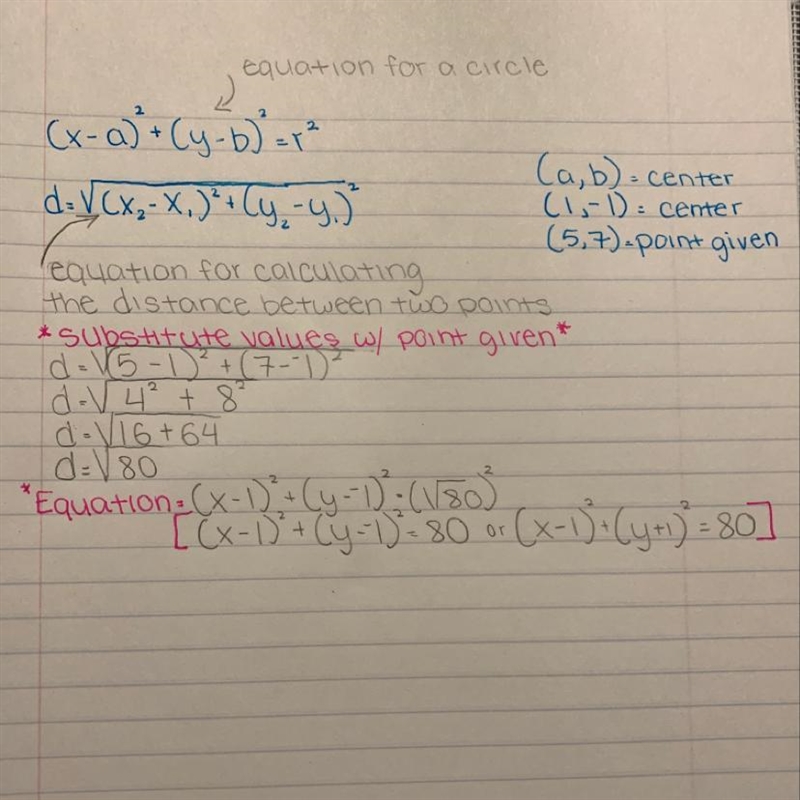 equation for a circle
(x-a)²+(y-b)²=r²
d=√(x₂-x₁)²+(y₂-y₁)²
(a,b)=center
(1,-1)=center
(5,7)=point given
equation for calculating
the distance between two points
*substitute values w/ point given*
d=√(5-1)²+(7--1)²
d=√4²+8²
d=√16+64
d=√80
*Equation=(x-1)²+(y--1)²=(√80)²
[(x-1)²+(y--1)²=80 or (x-1)²+(y+1)²=80]